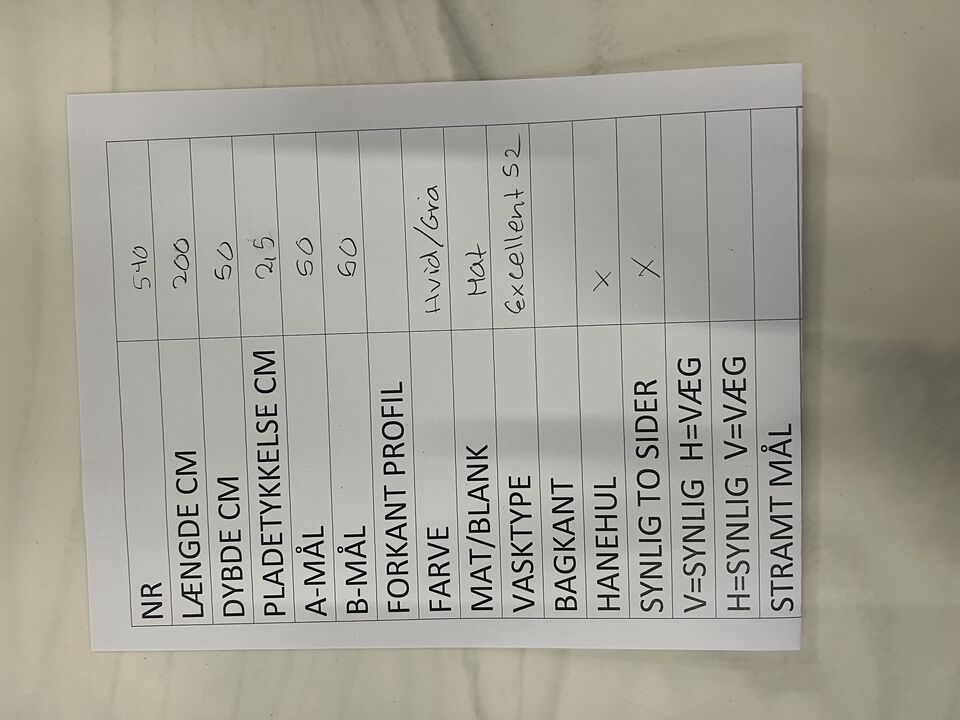 NR 540
LÆNGDE CM 200
DYBDE CM 50
PLADETYKKELSE CM 2,5
A-MÅL 50
B-MÅL 50
FORKANT PROFIL
FARVE Hvid/Grå
MAT/BLANK Mat
VASKTYPE Excellent 52
BAGKANT
HANEHUL X
SYNLIG TO SIDER X
V=SYNLIG H=VÆG
H=SYNLIG V=VÆG
STRAMT MÅL